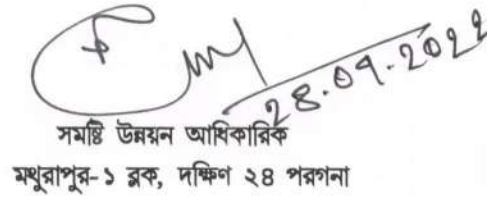 28.09.2022
সমষ্টি উন্নয়ন আধিকারিক
মথুরাপুর-১ ব্লক, দক্ষিণ ২৪ পরগনা